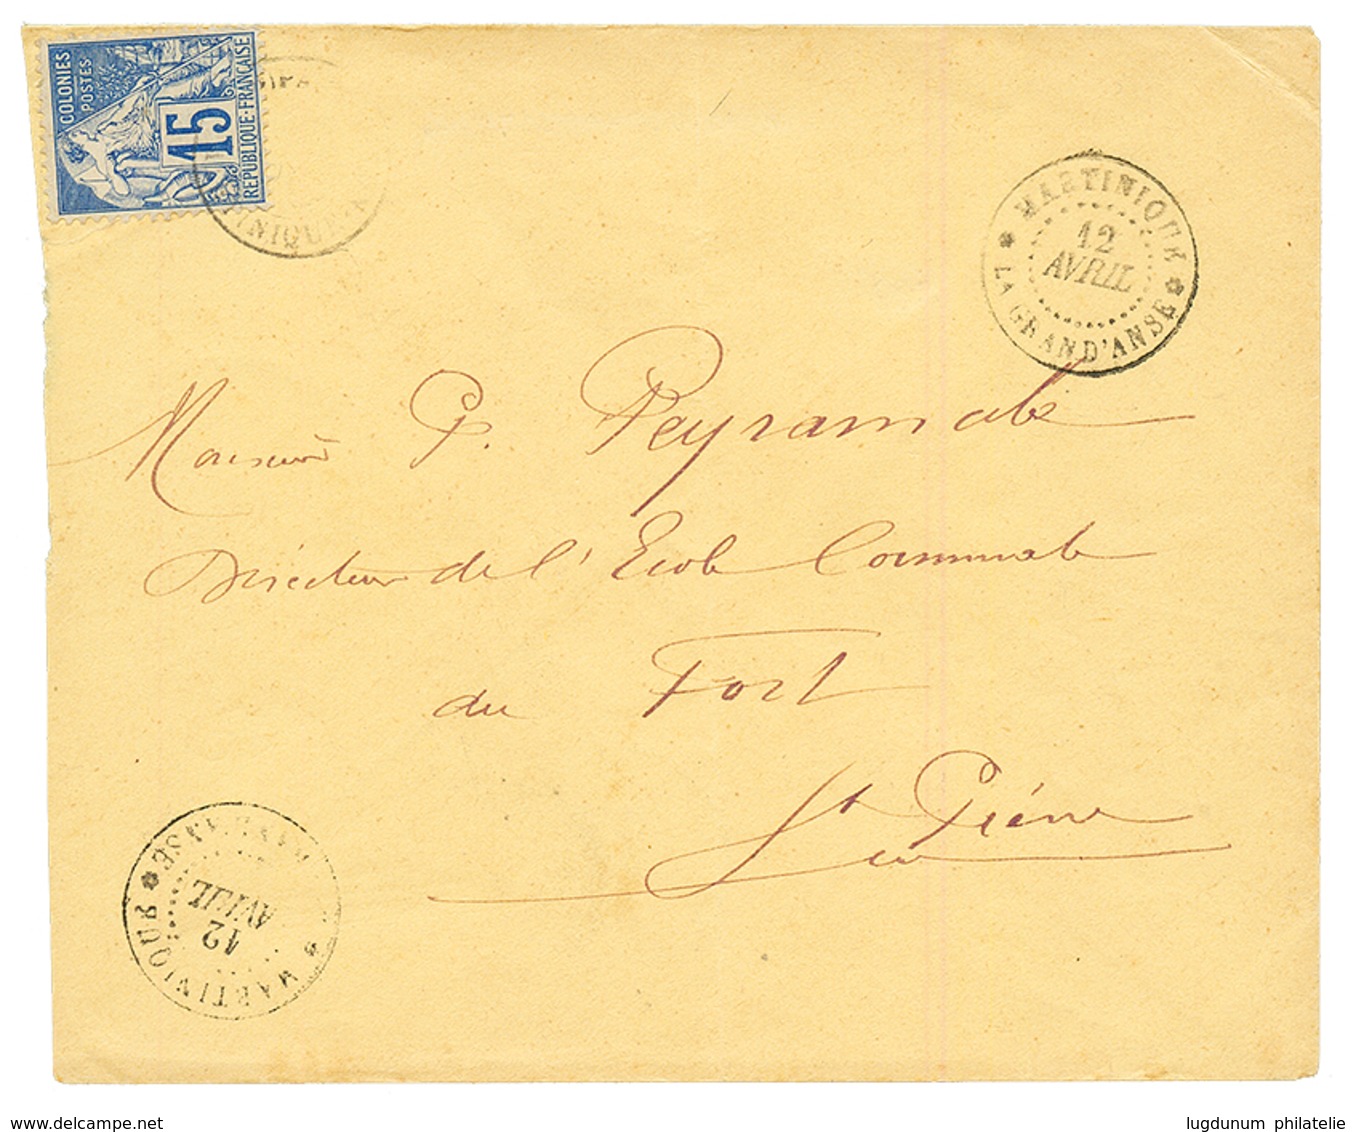 COLONIES
POSTES
15
REPUBLIQUE FRANCAISE
MARTINIQUE
12
AVRIL
LA GRAND'ANSE
Monsieur P. Peyramale
Directeur de l'Ecole Communale
du Fort
St Pierre
MARTINIQUE
12
AVRIL
www.delcampe.net
lugdunum philatelie